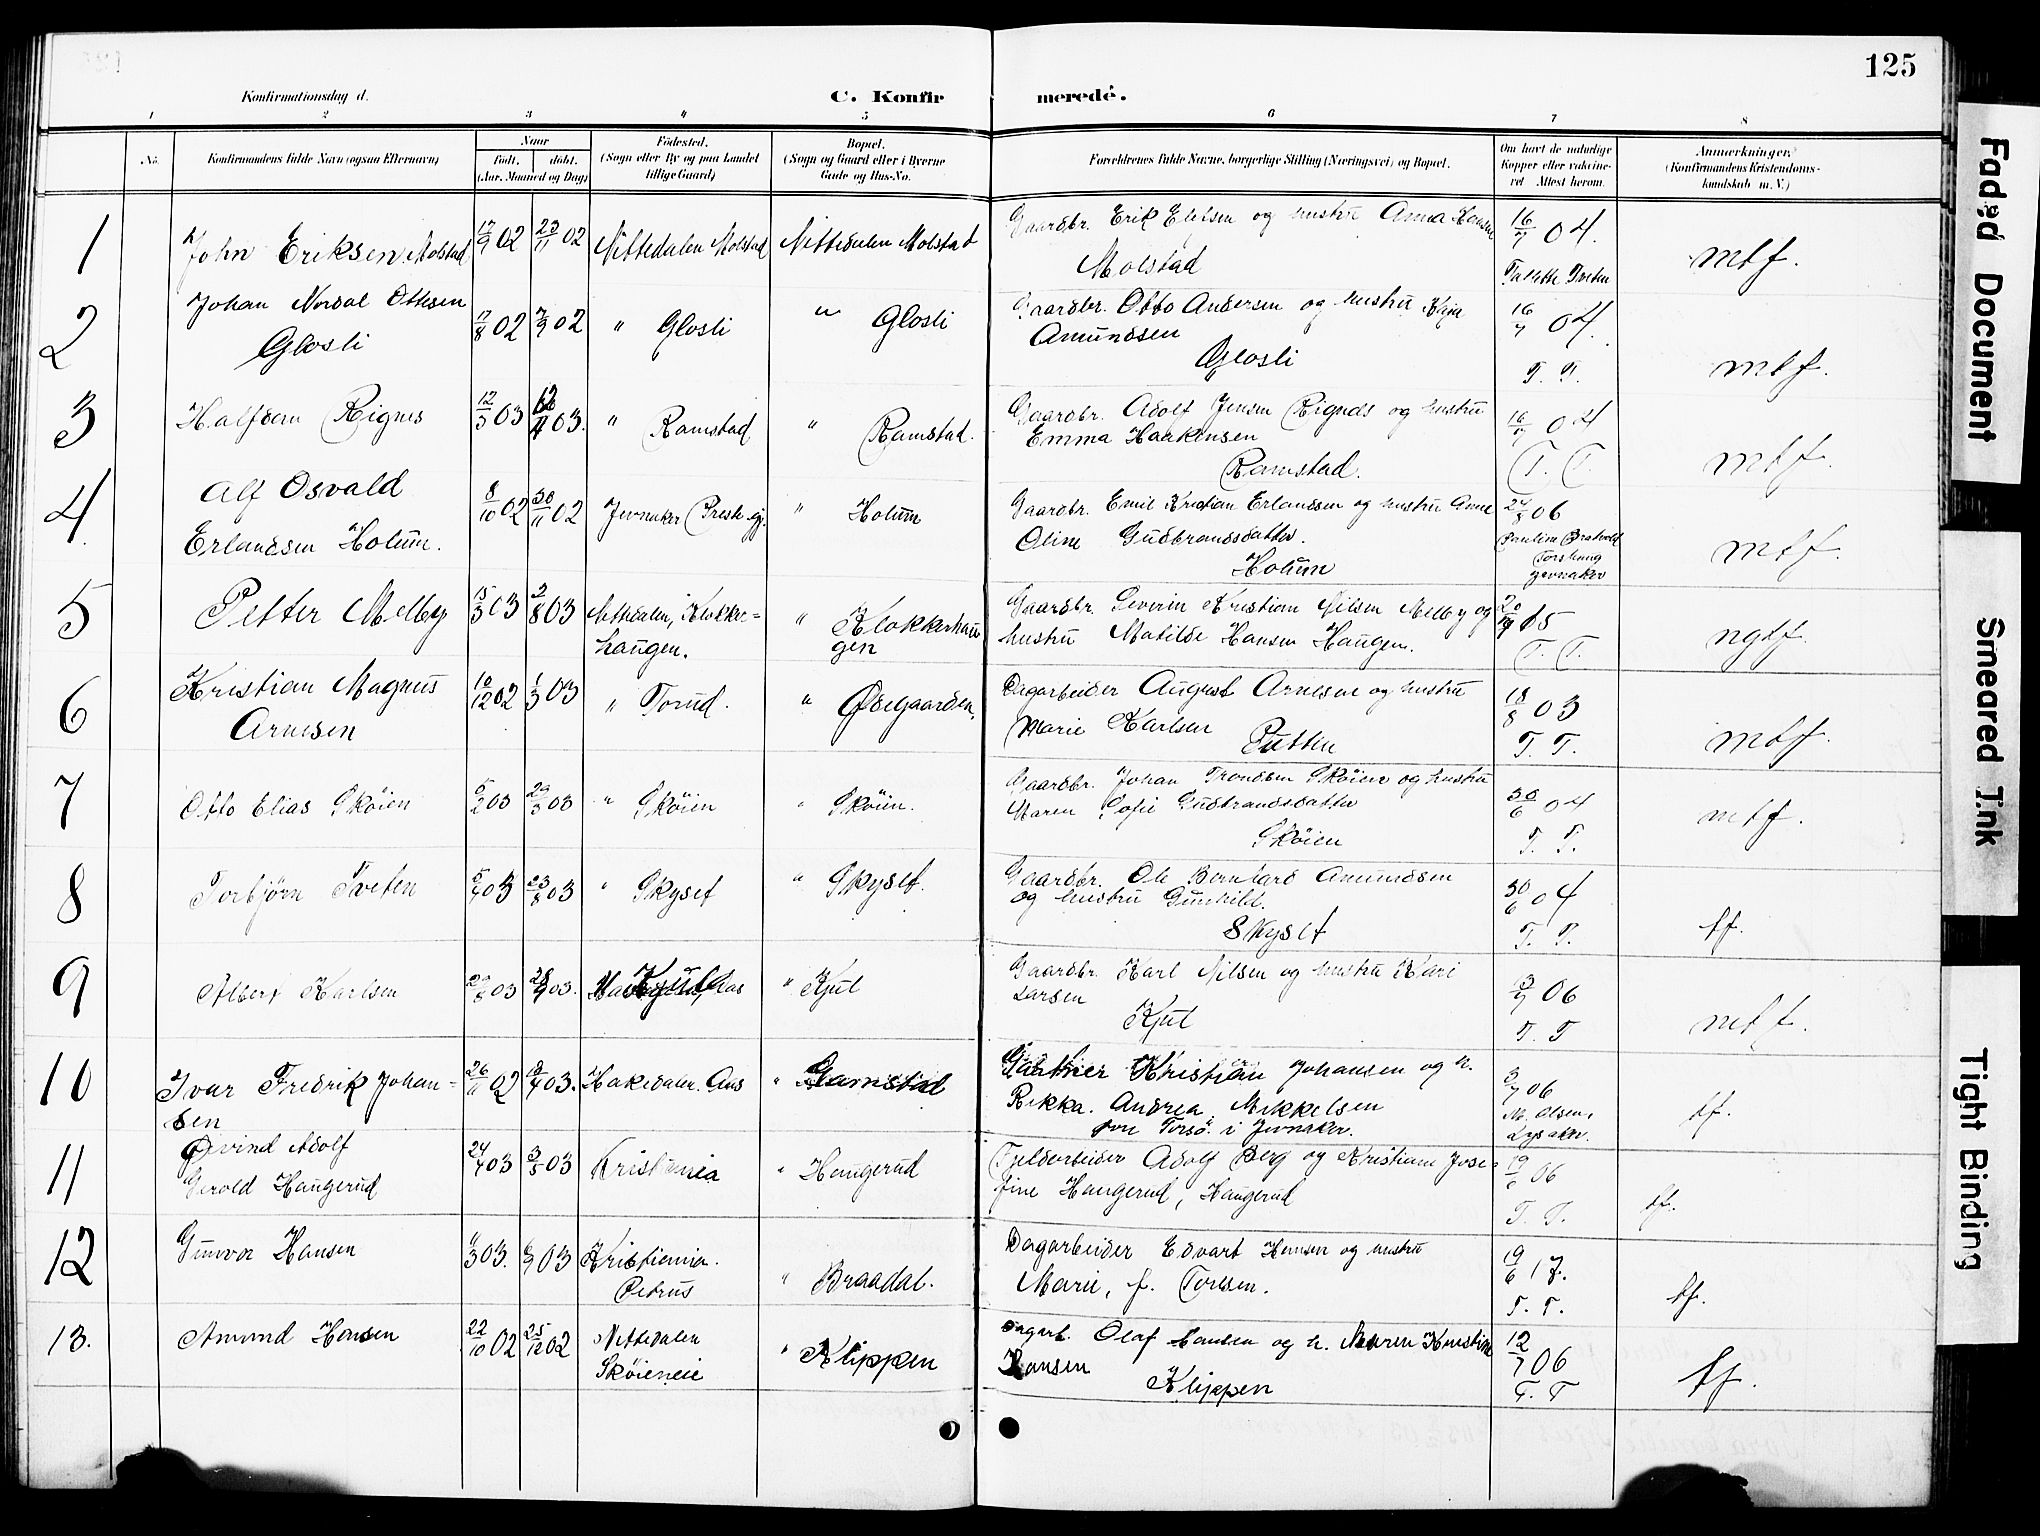 125
Konfirmationsdag d.
C. Konfirmerede.
1 2 3 4 5 6 7 8
No.
Konfirmandens fulde Navn (ogsaa Efternavn)
Naar
født. døbt.
(Aar, Maaned og Dag)
Fødested.
(Sogn eller By og paa Landet
tillige Gaard)
Bopæl.
(Sogn og Gaard eller i Byerne
Gade og Hus-No.
Forældrenes fulde Navne, borgerlige Stilling (Næringsvei) og Bopæl.
Om havt de naturlige
Kopper eller vaccine-
ret Attest herom.
Anmærkninger.
(Konfirmandens Kristendoms-
kundskab m. V.)
1 John Eriksen Molstad 17/9 02 23/11 02 Nittedalen Molstad Nittedalen Molstad Gaardbr. Erik Eletsen og hustru Anna Hansen 16/7 04. mtf.
Molstad
2 Johan Nordal Ottesen 17/8 02 7/9 02 " Glosli " Glosli Gaardbr. Otto Andersen og hustru Kaja 16/7 04 mtf.
Glosli Amundsen
Glosli T. T.
3 Halfdan Rignes 12/3 03 03. " Ramstad " Ramstad. Gaardbr. Adolf Jensen Rignes og hustru 16/7 04 mtf.
Emma Haakensen T. T.
Ramstad.
4 Alf Osvald 8/10 02 30/11 02 Jevnaker Preste.gj. " Holum Gaardbr. Emil Kristian Erlandsen og hustru Anne 24/8 06 mtf.
Erlandsen Holum. Oline Gudbrandsdatter. Pauline Bratvold
Holum Torshaug
Jevnaker
5 Petter Melby 15/3 03 2/8 03 Nittedalen, Klokker= " Klokkerhau Gaardbr. Severin Kristian Nilsen Melby og ngtf.
haugen. gen hustru Matilde Hansen Haugen. T. T.
6 Kristian Magnus 10/12 02 1/3 03 " Torud. " Ødegaarden. Dagarbeider August Arnesen og hustru 18/8 03 mtf.
Arnesen Marie Karlsen Putten T. T.
7 Otto Elias Skøien 5/2 03 29/3 03 " Skøien " Skøien. Gaardbr. Johan Trondsen Skøien og hustru 30/6 04 mtf.
Maren Sofie Gudbrandsdatter
Skøien T. T.
8 Torbjørn Tveten 5/7 03 23/8 03 " Skyset " Skyset. Gaardbr. Ole Berntard Amundsen 30/6 04 tf.
og hustru Gunhild.
Skyset T. T.
9 Albert Karlsen 03 03. Aas " Kjul Gaardbr. Karl Nilsen og hustru Kari 3/7 06 mtf.
Larsen
Kjul T. T
10 Ivar Fredrik Johan- 26/11 02 03. Hakedalen. Aas " Gamstad Kristian Johansen og h. 3/7 06 tf.
sen Rikka. Andrea. Mikkelsen M. Olsen,
i Jevnaker. Lysaker.
11 Øivind Adolf 24/4 03 3/5 03 Kristiania " Haugerud Adolf Berg og Kristiane Jose- 06 tf.
Gerold Haugerud fine Haugerud, Haugerud T. T.
12 Gunvor Hansen 03. 03 Kristiania. " Braadal. Dagarbeider Edvart Hansen og hustru 19/6 17. tf.
Petrus Marie, f. Toresen. T. T.
13. Amund Hansen 22/10 02 25/12 02 Nittedalen " Klippen Dagarb. Olaf Hansen og h. Maren Kristine 12/7 06 tf.
Skøieneie Hansen Klippen T. T
Faded Document
Smeared Ink
Tight Binding